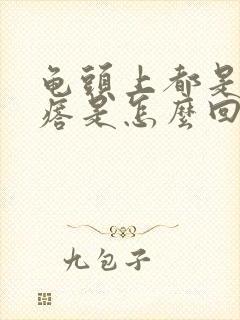 龟頭上都是
痞是怎麼回
九包子